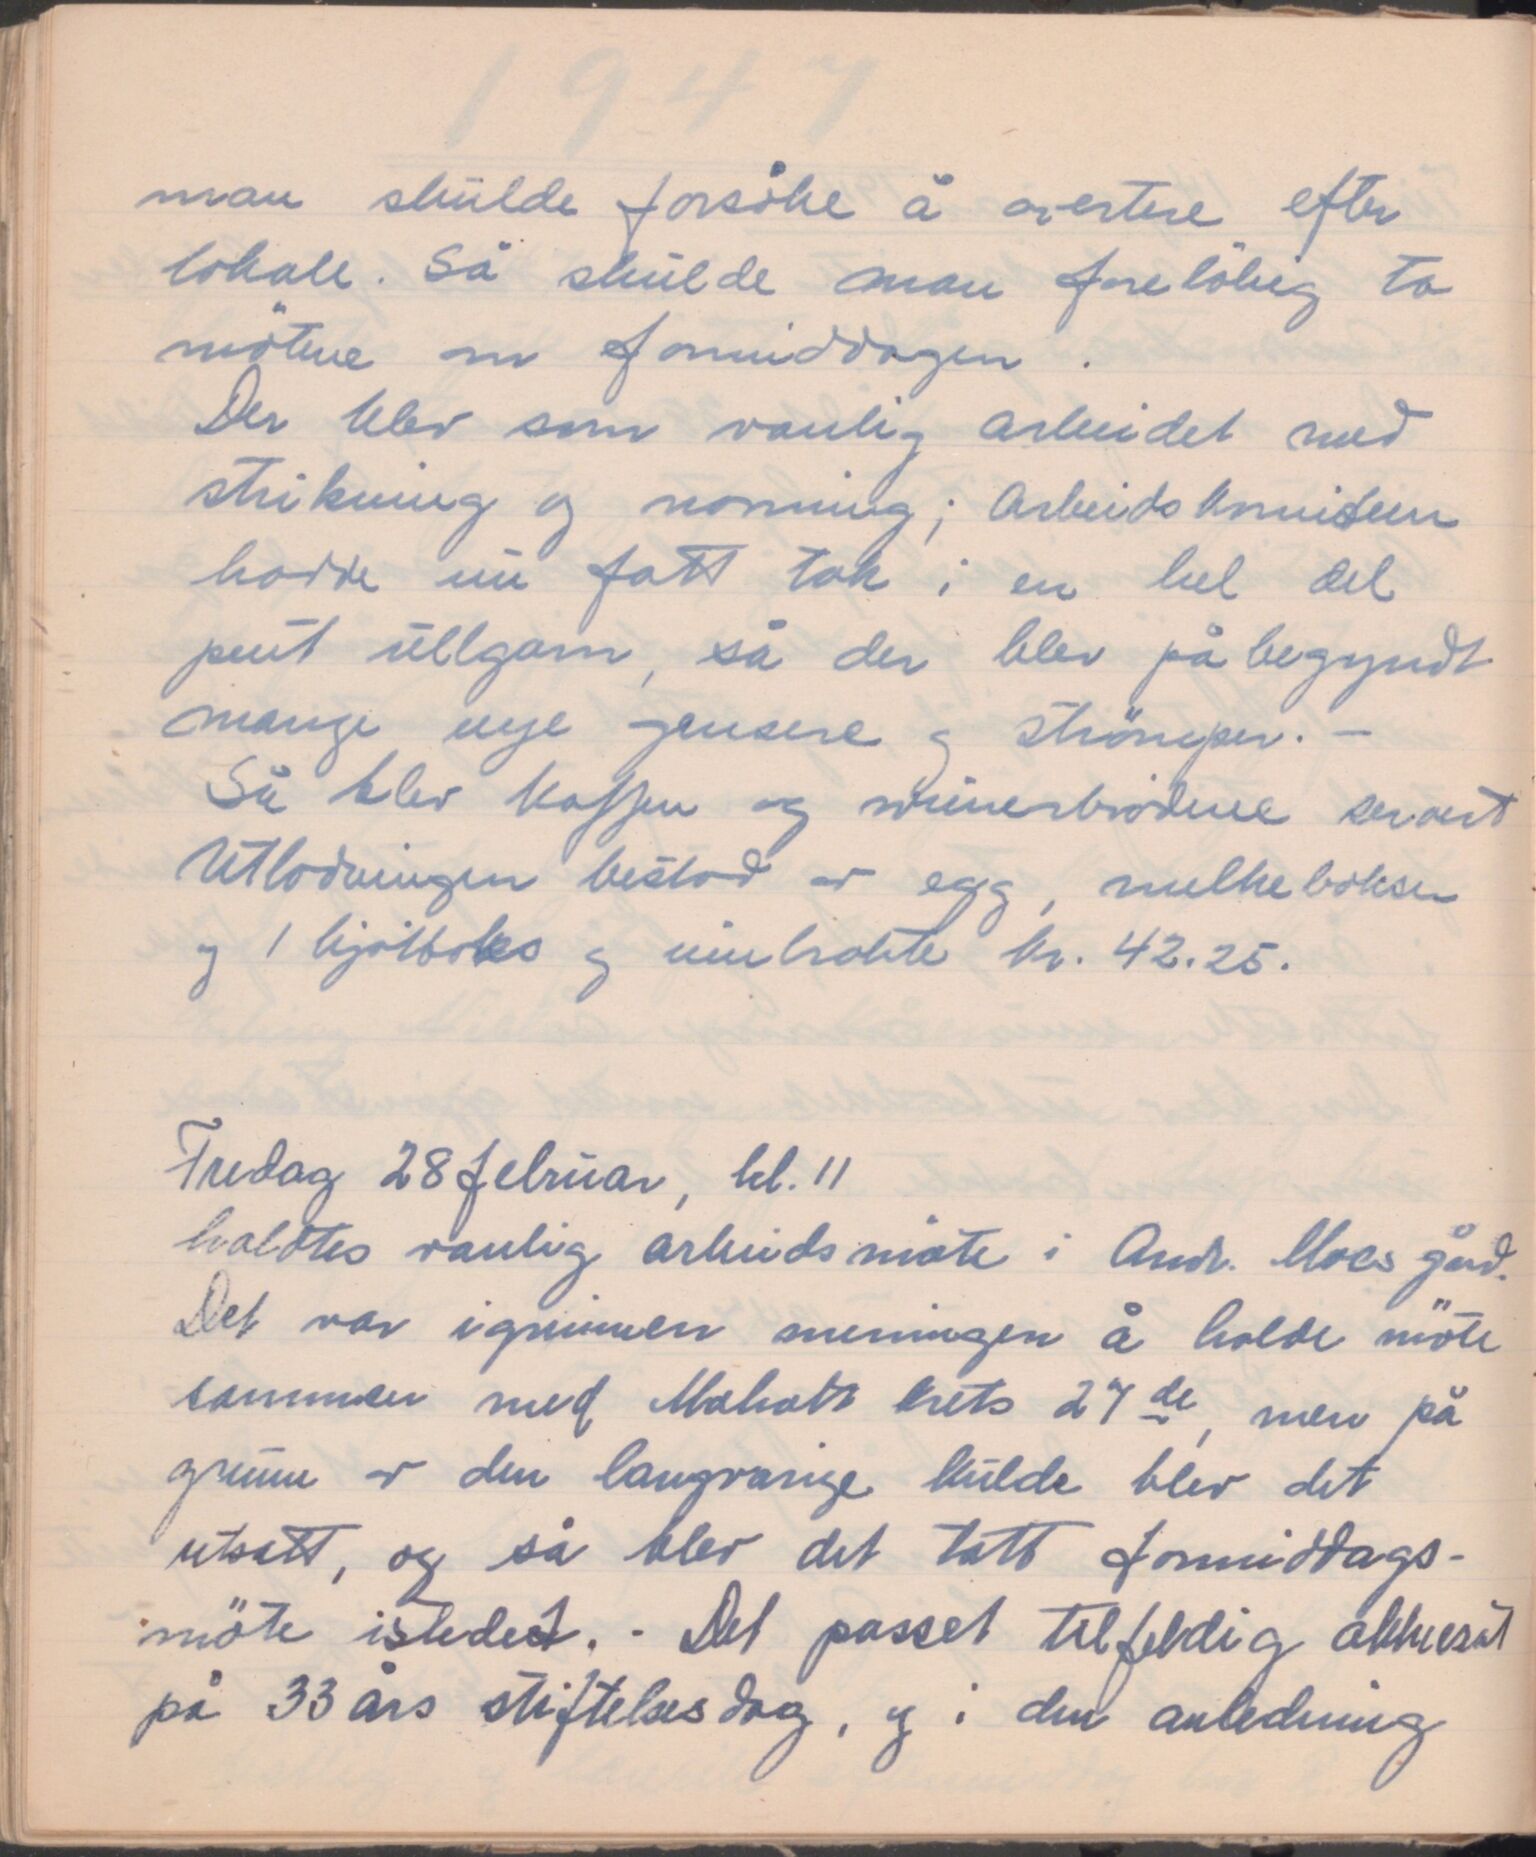 1947
man skulde forsøke å avertere efter
lokale. Så skulde man foreløbig ta
møtene om formiddagen.
Der blev som vanlig arbeidet med
strikning og norning; Arbeidskomiteen
hadde nu fatt tak i en hel del
pent ullgarn, så der blev påbegyndt
mange nye gensere og strömper. -
Så blev kaffen og wienerbrødene servert
Utlodningen bestod av egg, melkebokser
og 1 kjøttboks og innbrakte kr. 42.25.
Fredag 28 februar, kl. 11
holdtes vanlig arbeidsmøte i Andr. Moes gård.
Det var igrunnen meningen å holde möte
sammen med krets 27de, men på
grunn av den langvarige kulde blev det
utsatt, og så blev det tatt formiddags-
möte istedet. - Det passet tilfeldig akkurat
på 33 års stiftelsesdag, og i den anledning